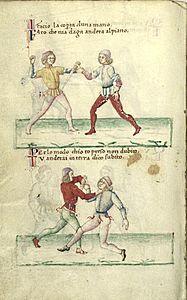 I facio la coppa d una mano.
Faro che tua daga andera al piano.
Per lo modo ch io to preso non dubito.
Tu anderai in terra dico subito.